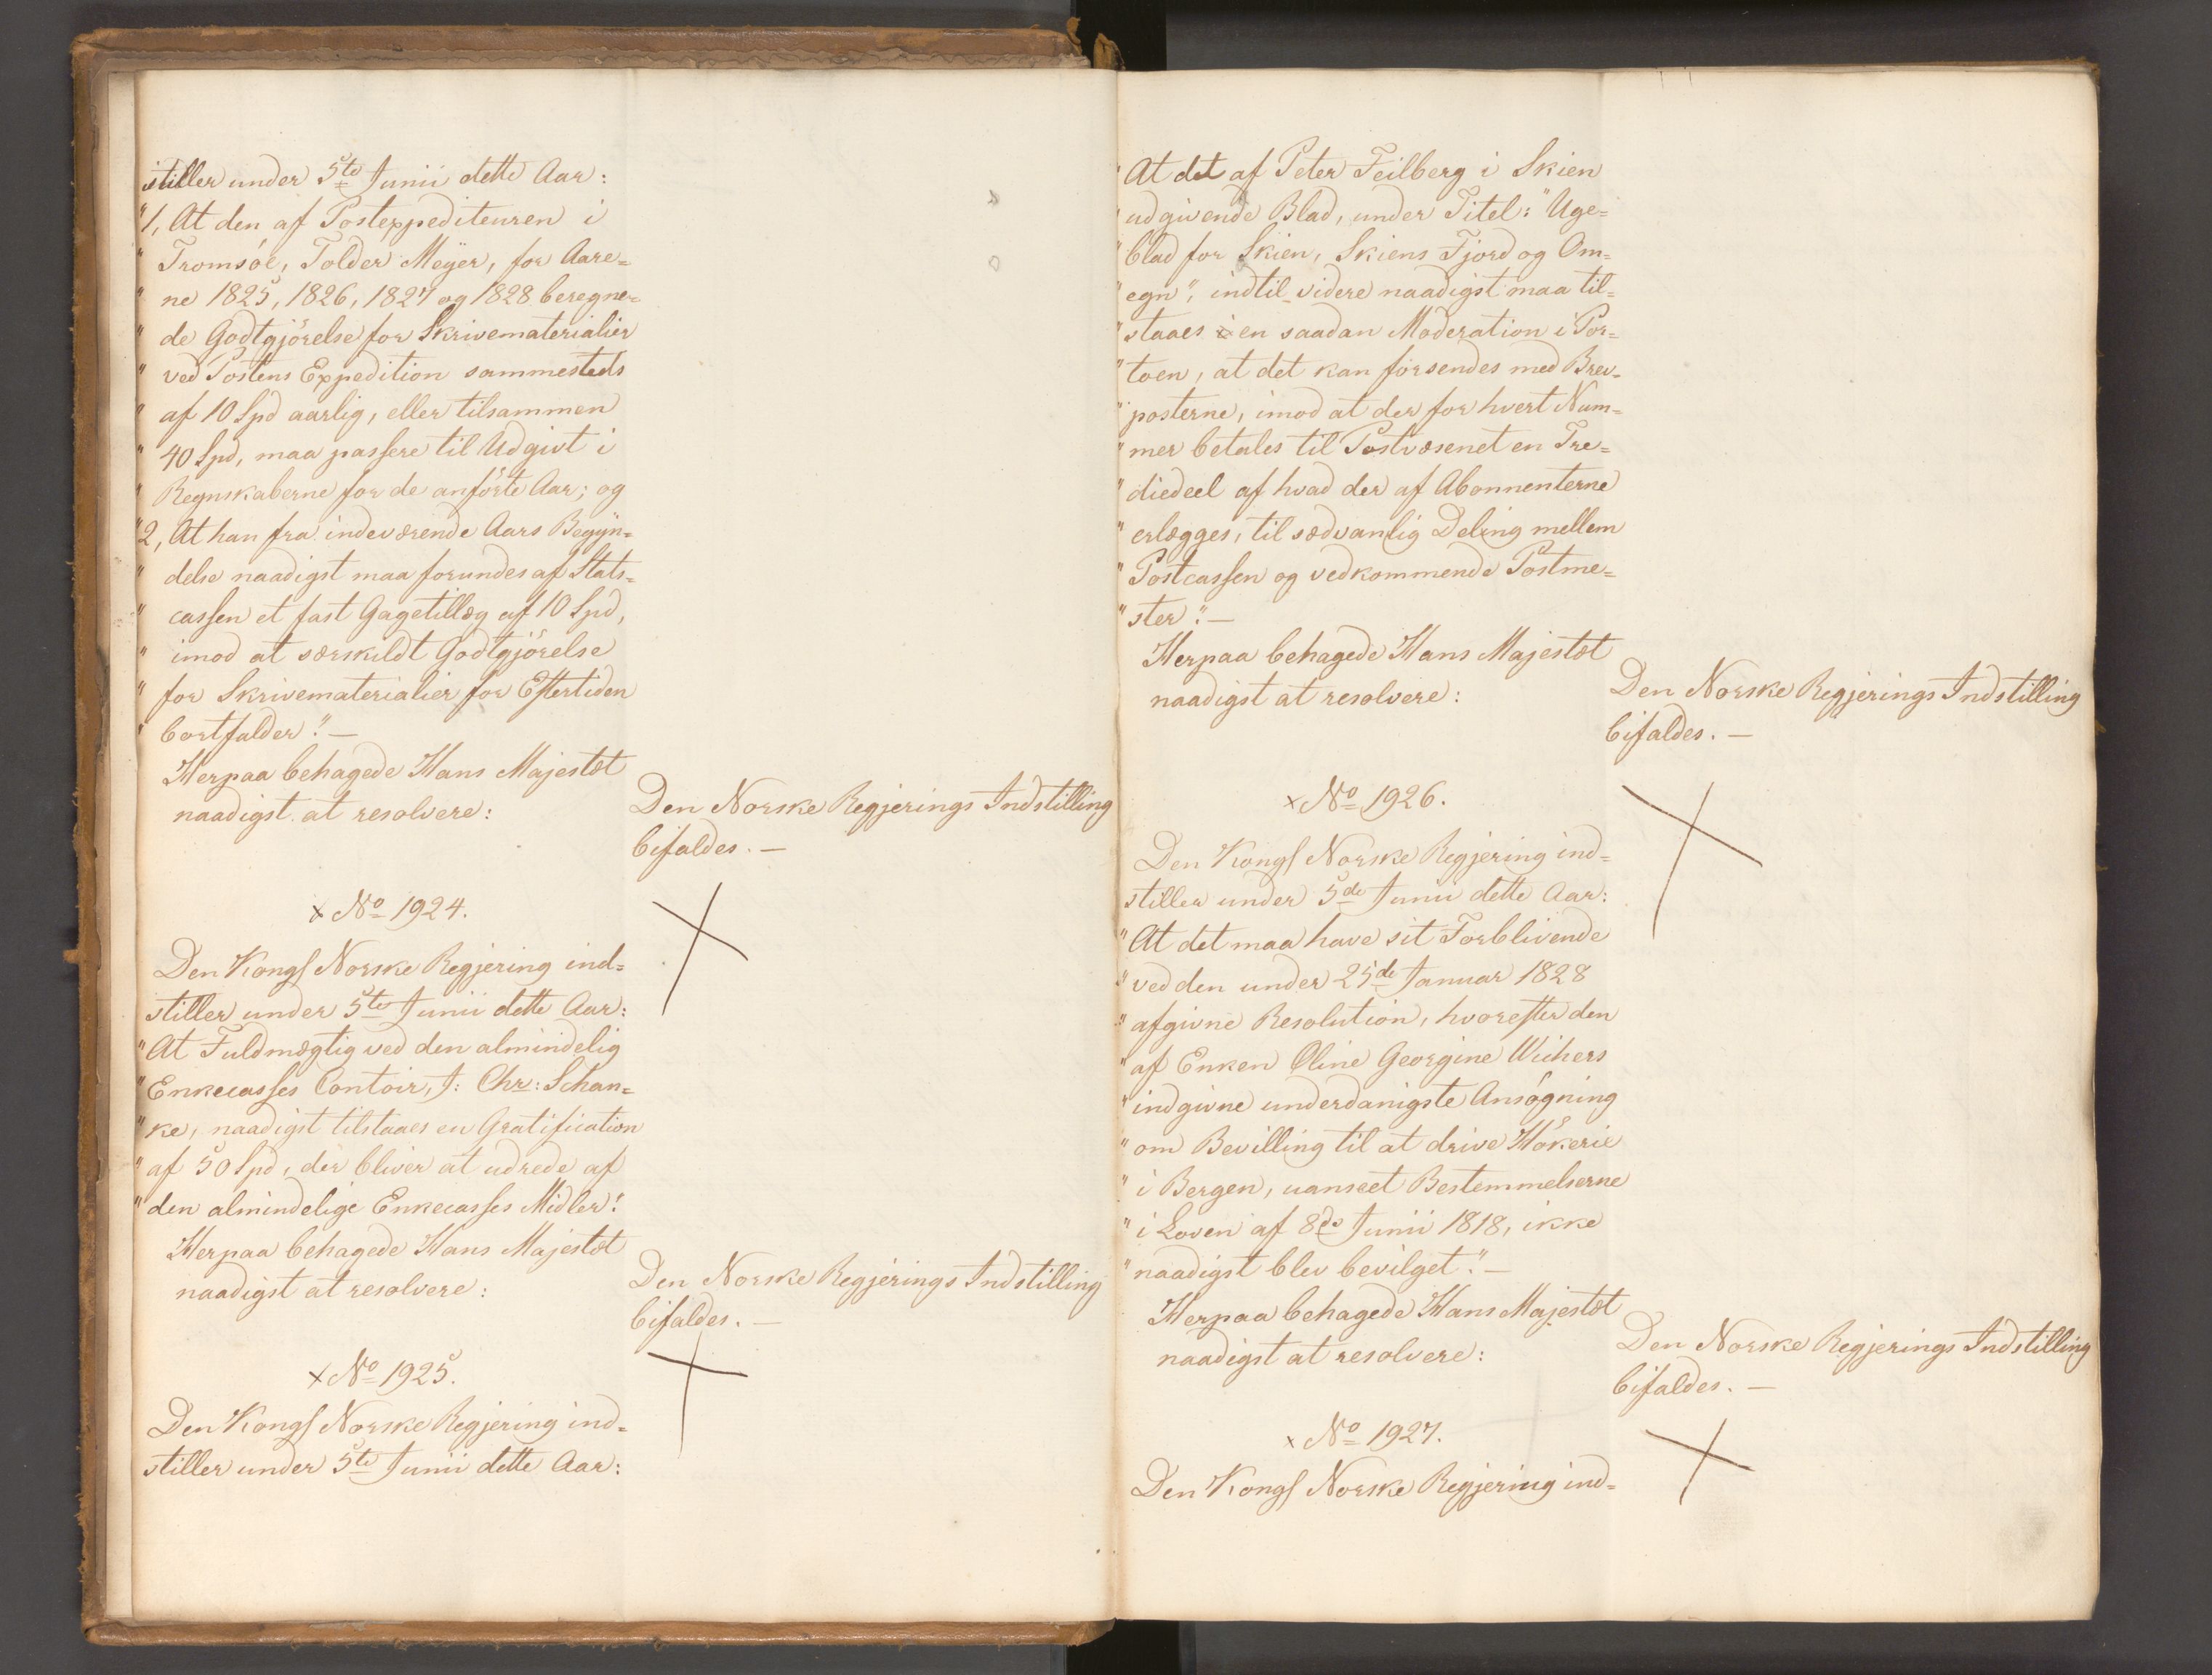 stiller under 5te Junii dette Aar:
"1, At den af Postexpediteuren i
" Tromsöe, Tolder Meyer, for Aare=
" ne 1825, 1826, 1827 og 1828 beregne=
" de Godtgjörelse for Skrivematerialier
" ved Postens Expedition sammesteds
" af 10 Spd aarlig, eller tilsammen
" 40 Spd, maa passere til Udgivt i
" Regnskaberne for de anförte Aar; og
"2, At han fra indeværende Aars Begyn=
" delse naadigst maa forundes af Stats=
" cassen et fast Gagetillæg af 10 Spd,
" imod at særskildt Godtgjörelse
" for Skrivematerialier for Eftertiden
" bortfalder". —
Herpaa behagede Hans Majestæt
naadigst at resolvere:
Den Norske Regjerings Indstilling
bifaldes. —
x No 1924.
Den Kongl Norske Regjering ind=
stiller under 5te Junii dette Aar:
"At Fuldmægtig ved den almindelig
"Enkecasses Contoir, J: Chr: Schan=
"ke, naadigst tilstaaes en Gratification
"af 50 Spd, der bliver at udrede af
"den almindelige Enkecasses Midler".
Herpaa behagede Hans Majestæt
naadigst at resolvere:
Den Norske Regjerings Indstilling
bifaldes. —
x No 1925.
Den Kongl Norske Regjering ind=
stiller under 5te Junii dette Aar:
"At det af Peter Feilberg i Skien
"udgivende Blad, under Titel: "Uge=
"blad for Skien, Skiens Fjord og Om=
"egn", indtil videre naadigst maa til=
"staaes en saadan Moderation i Por=
"toen, at det kan forsendes med Brev=
"posterne, imod at der for hvert Num=
"mer betales til Postvæsenet en Tre=
"diedeel af hvad der af Abonnenterne
"erlægges, til sædvanlig Deling mellem
"Postcassen og vedkommende Postme=
"ster". —
Herpaa behagede Hans Majestæt
naadigst at resolvere:
Den Norske Regjerings Indstilling
bifaldes. —
x No 1926.
Den Kongl Norske Regjering ind=
stiller under 5de Junii dette Aar:
"At det maa have sit Forblivende
"ved den under 25de Januar 1828
"afgivne Resolution, hvorefter den
"af Enken Oline Georgine Wiehers
"indgivne underdanigste Ansögning
"om Bevilling til at drive Hökerie
"i Bergen, uanseet Bestemmelserne
"i Loven af 8de Junii 1818, ikke
"naadigst blev bevilget". —
Herpaa behagede Hans Majestæt
naadigst at resolvere:
Den Norske Regjerings Indstilling
bifaldes. —
x No 1927.
Den Kongl Norske Regjering ind=